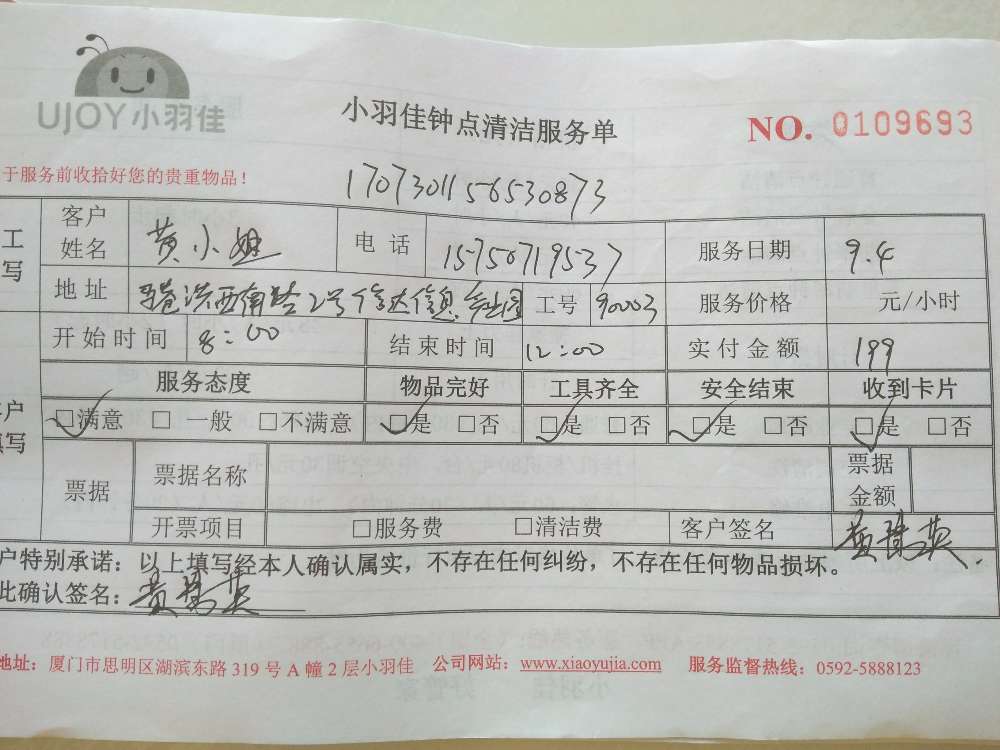 UJOY小羽佳
小羽佳钟点清洁服务单
NO. 0109693
于服务前收拾好您的贵重物品！
1707301156530873
工 写
客户姓名 黄小姐 电话 15750719537 服务日期 9.4
地址 洪西南路2号信达信息 工号 90003 服务价格 元/小时
开始时间 8:00 结束时间 12:00 实付金额 199
服务态度 物品完好 工具齐全 安全结束 收到卡片
户 填写
□满意 □一般 □不满意 □是 □否 □是 □否 □是 □否 □是 □否
票据 票据名称 票据金额
开票项目 □服务费 □清洁费 客户签名 黄 英
户特别承诺：以上填写经本人确认属实，不存在任何纠纷，不存在任何物品损坏。
此确认签名：黄 英
地址：厦门市思明区湖滨东路 319 号 A 幢 2 层小羽佳 公司网站：www.xiaoyujia.com 服务监督热线：0592-5888123